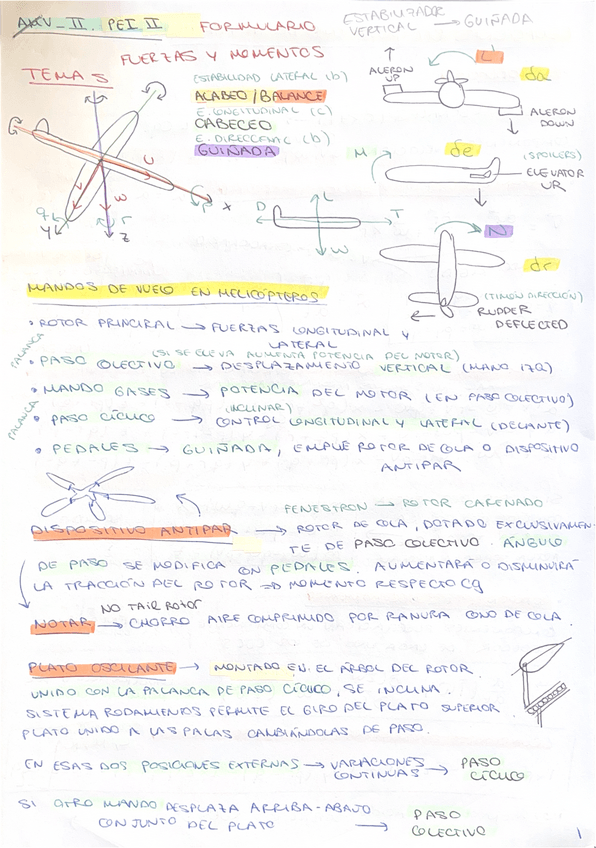 AMV_II. PEI II FORMULARIO
ESTABILIZADOR VERTICAL → GUIÑADA
FUERZAS Y MOMENTOS
TEMA 5
(ESTABILIDAD LATERAL (b)
ALABEO/BALANCE
E. LONGITUDINAL (c)
CABECEO
E. DIRECCIONAL (b)
GUIÑADA
L'
da
ALERON UP
ALERON DOWN
M
de
(SPOILERS)
ELEVATOR UR
D
L
T
W
U
W
P
X
q
Y
r
Z
N
dr
(TIMÓN DIRECCIÓN)
RUDDER DEFLECTED
MANDOS DE VUELO EN HELICÓPTEROS
• ROTOR PRINCIPAL → FUERZAS LONGITUDINAL Y LATERAL
(SI SE ELEVA AUMENTA POTENCIA DEL MOTOR)
PALANCA
• PASO COLECTIVO → DESPLAZAMIENTO VERTICAL (MANO IZQ)
• MANDO GASES → POTENCIA DEL MOTOR (EN PASO COLECTIVO)
(INCLINAR)
PALANCA
• PASO CÍCLICO → CONTROL LONGITUDINAL Y LATERAL (DELANTE)
• PEDALES → GUIÑADA, EMPUJE ROTOR DE COLA O DISPOSITIVO
ANTIPAR
FENESTRON → ROTOR CARENADO
DISPOSITIVO ANTIPAR → ROTOR DE COLA, DOTADO EXCLUSIVAMEN-
TE DE PASO COLECTIVO. ÁNGULO
DE PASO SE MODIFICA CON PEDALES. AUMENTARÁ O DISMINUIRÁ
LA TRACCIÓN DEL ROTOR ⇒ MOMENTO RESPECTO CG
NO TAIL ROTOR
NOTAR → CHORRO AIRE COMPRIMIDO POR RANURA CONO DE COLA.
PLATO OSCILANTE → MONTADO EN EL ÁRBOL DEL ROTOR.
UNIDO CON LA PALANCA DE PASO CÍCLICO, SE INCLINA.
SISTEMA RODAMIENTOS PERMITE EL GIRO DEL PLATO SUPERIOR
PLATO UNIDO A LAS PALAS CAMBIÁNDOLAS DE PASO.
EN ESAS DOS POSICIONES EXTERNAS → VARIACIONES CONTINUAS → PASO CÍCLICO
SI OTRO MANDO DESPLAZA ARRIBA-ABAJO
CONJUNTO DEL PLATO → PASO COLECTIVO
1